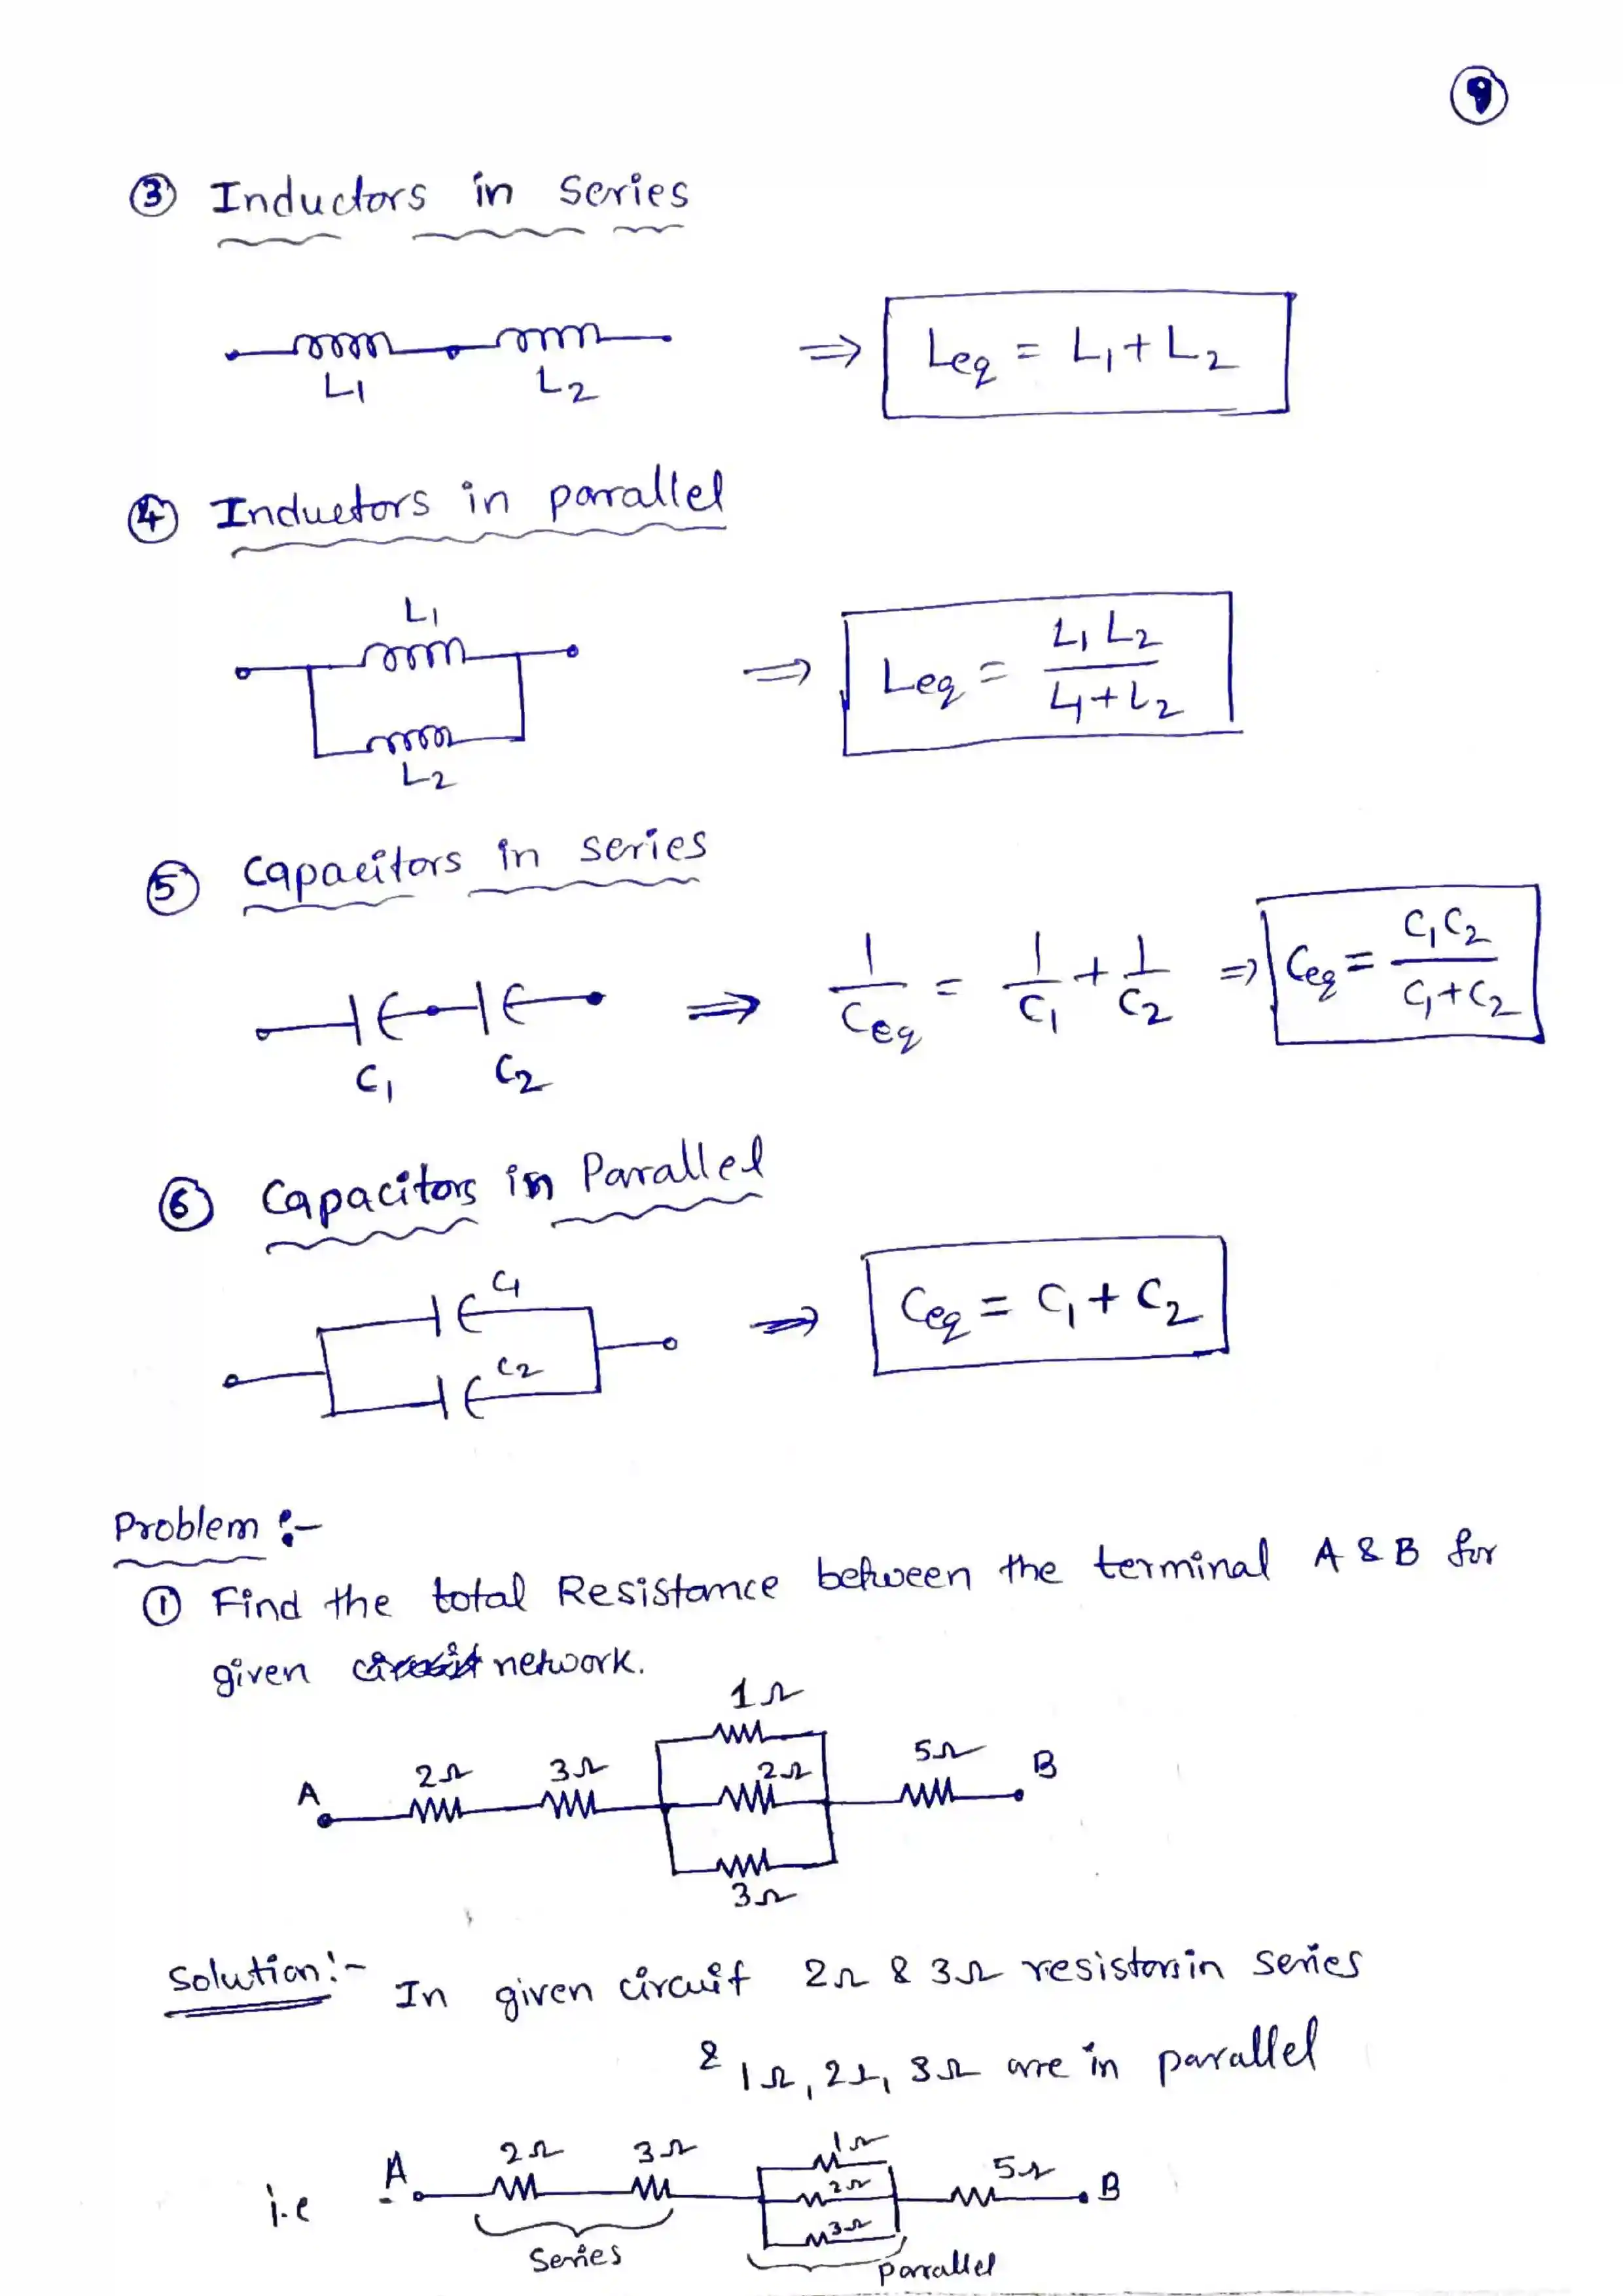 9
③ Inductors in Series
L1 L2 ⇒ Leq = L1 + L2
④ Inductors in parallel
L1
L2
⇒ Leq = L1 L2 / L1 + L2
⑤ Capacitors in series
C1 C2
⇒ 1/Ceq = 1/C1 + 1/C2 ⇒ Ceq = C1C2 / C1+C2
⑥ Capacitors in Parallel
C1
C2
⇒ Ceq = C1 + C2
Problem :-
① Find the total Resistance between the terminal A & B for
given network.
1Ω
A 2Ω 3Ω 2Ω 5Ω B
3Ω
Solution:- In given circuit 2Ω & 3Ω resistors in series
& 1Ω, 2Ω, 3Ω are in parallel
1Ω
i.e A 2Ω 3Ω 2Ω 5Ω B
3Ω
Series parallel